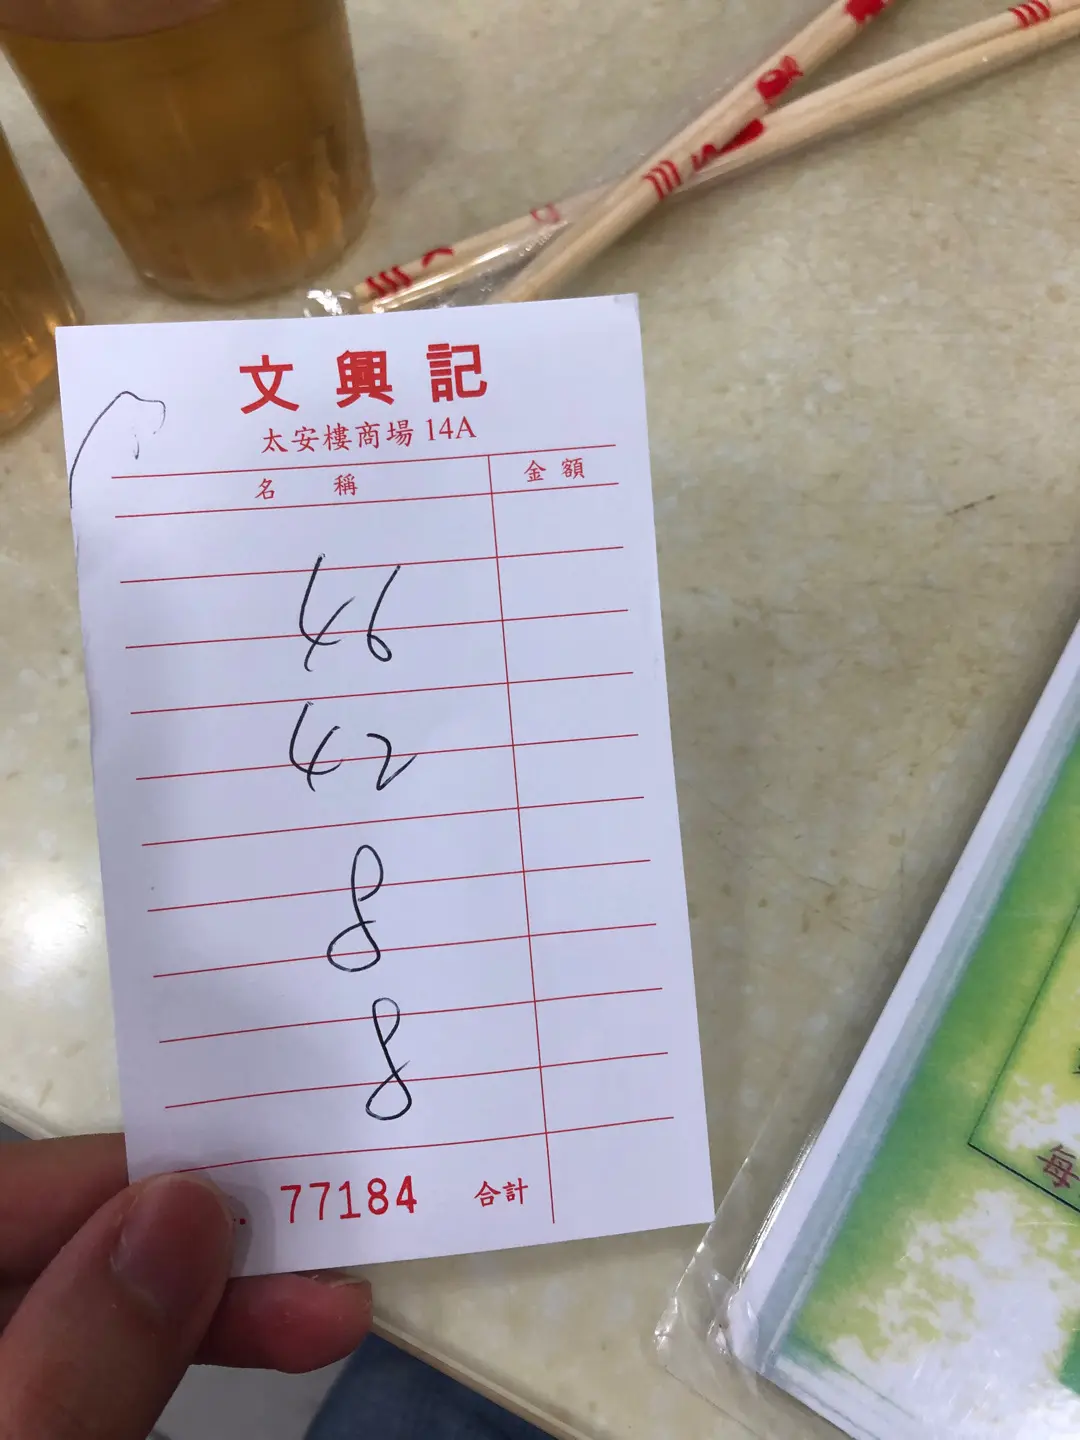 文興記
太安樓商場 14A
名 稱 金 額
46
42
8
8
77184 合計
每